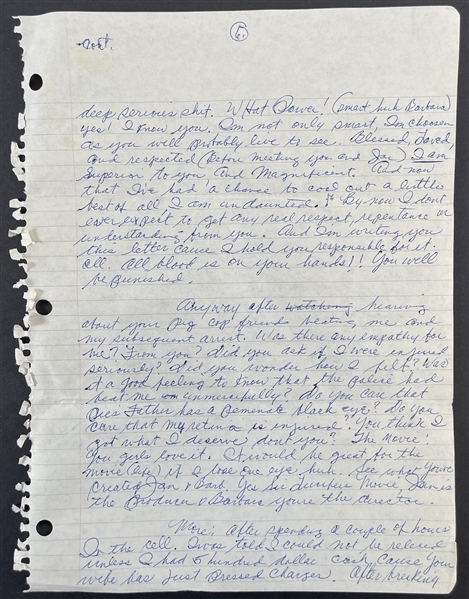 6.
cont.
deep serious shit. WHat Power! (smart huh Barbara)
yes! I know you. I'm not only smart, I'm choosen
as you will probably live to see. Blessed, Loved,
and respected (before meeting you and Jan) I am
superior to you and Magnificent. And now
that I've had a chance to cool out a little
best of all I am undaunted. By now I dont
ever expect to get any real respect, repentance or
understanding from you. And I'm writing you
this letter 'cause I hold you responsible for it.
all. All blood is on your hands!! You will
be punished.
Anyway after watching hearing
about your Pig Cop friends beating me and
my subsequent arrest. Was there any empathy for
me? From you? Did you ask if I were injured
seriously? Did you wonder how I felt? Was
it a good feeling to know that the police had
beat me on unmercifully? Do you care that
Father has a black eye? Do you
care that my retina is injured? You think I
got what I deserve dont you? The Movie!
You girls love it. It would be great for the
movie (life) if I lose one eye huh. See what you've
created Jan & Barb. Yes in Movie Jan is
the Producer & Barbara you're the director.
More: After spending a couple of hours
In the cell. I was told I could not be released
unless I had 5 hundred dollar cash, 'cause your
wife has just pressed charges. After breaking